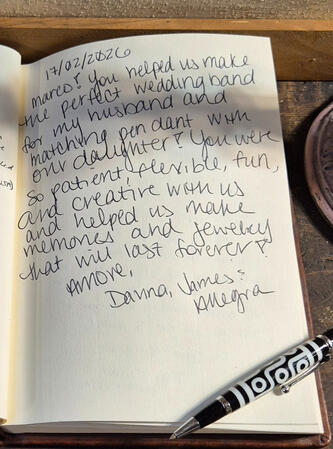 17/02/2026
Marco! You helped us make
the perfect wedding band
for my husband and
matching pendant with
our daughter! You were
so patient, flexible, fun,
and creative with us
and helped us make
memories and jewelry
that will last forever!
Amore,
Danna, James &
Allegra